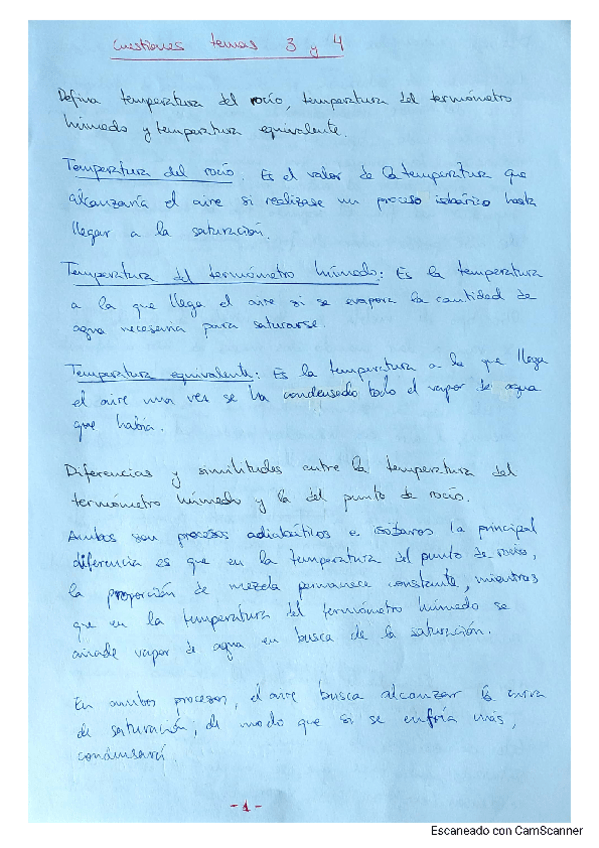 Cuestiones temas 3 y 4
Defina temperatura del rocío, temperatura del termómetro
húmedo y temperatura equivalente.
Temperatura del rocío. Es el valor de la temperatura que
alcanzaría el aire si realizase un proceso isobárico hasta
llegar a la saturación.
Temperatura del termómetro húmedo: Es la temperatura
a la que llega el aire si se evapora la cantidad de
agua necesaria para saturarse.
Temperatura equivalente: Es la temperatura a la que llega
el aire una vez se ha condensado todo el vapor de agua
que había.
Diferencias y similitudes entre la temperatura del
termómetro húmedo y la del punto de rocío.
Ambos son procesos adiabáticos e isóbaros la principal
diferencia es que en la temperatura del punto de rocío,
la proporción de mezcla permanece constante, mientras
que en la temperatura del termómetro húmedo se
añade vapor de agua en busca de la saturación.
En ambos procesos, el aire busca alcanzar la curva
de saturación, de modo que si se enfría más,
condensará.
-1-
Escaneado con CamScanner